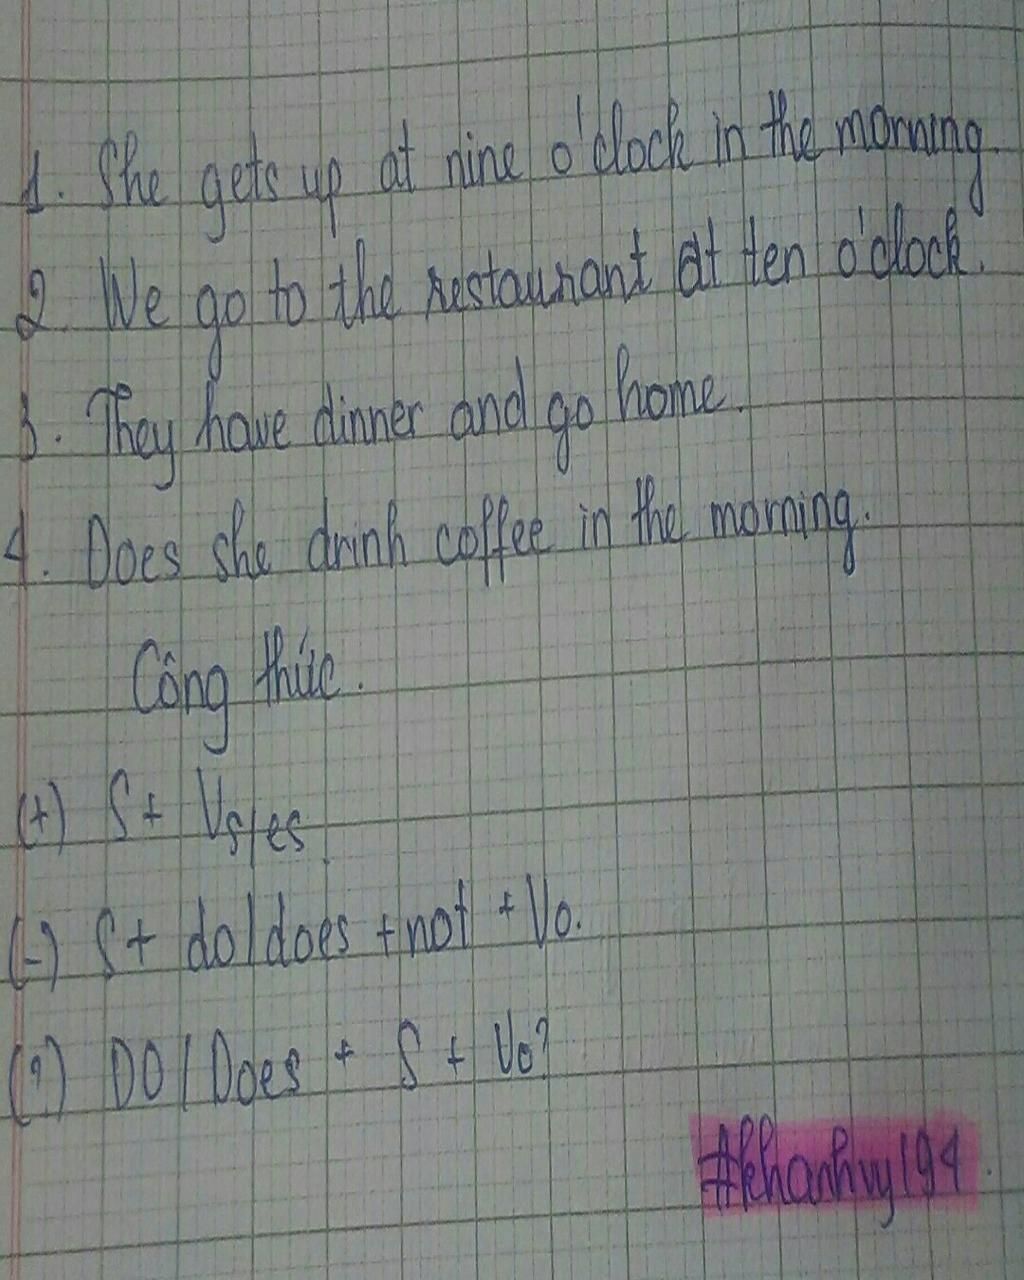 1. She gets up at nine o'clock in the morning.
2. We go to the restaurant at ten o'clock.
3. They have dinner and go home.
4. Does she drink coffee in the morning.
Công thức.
(+) S + Vs/es
(-) S + do/does + not + Vo.
(?) DO/Does + S + Vo?
#khanhvy194.